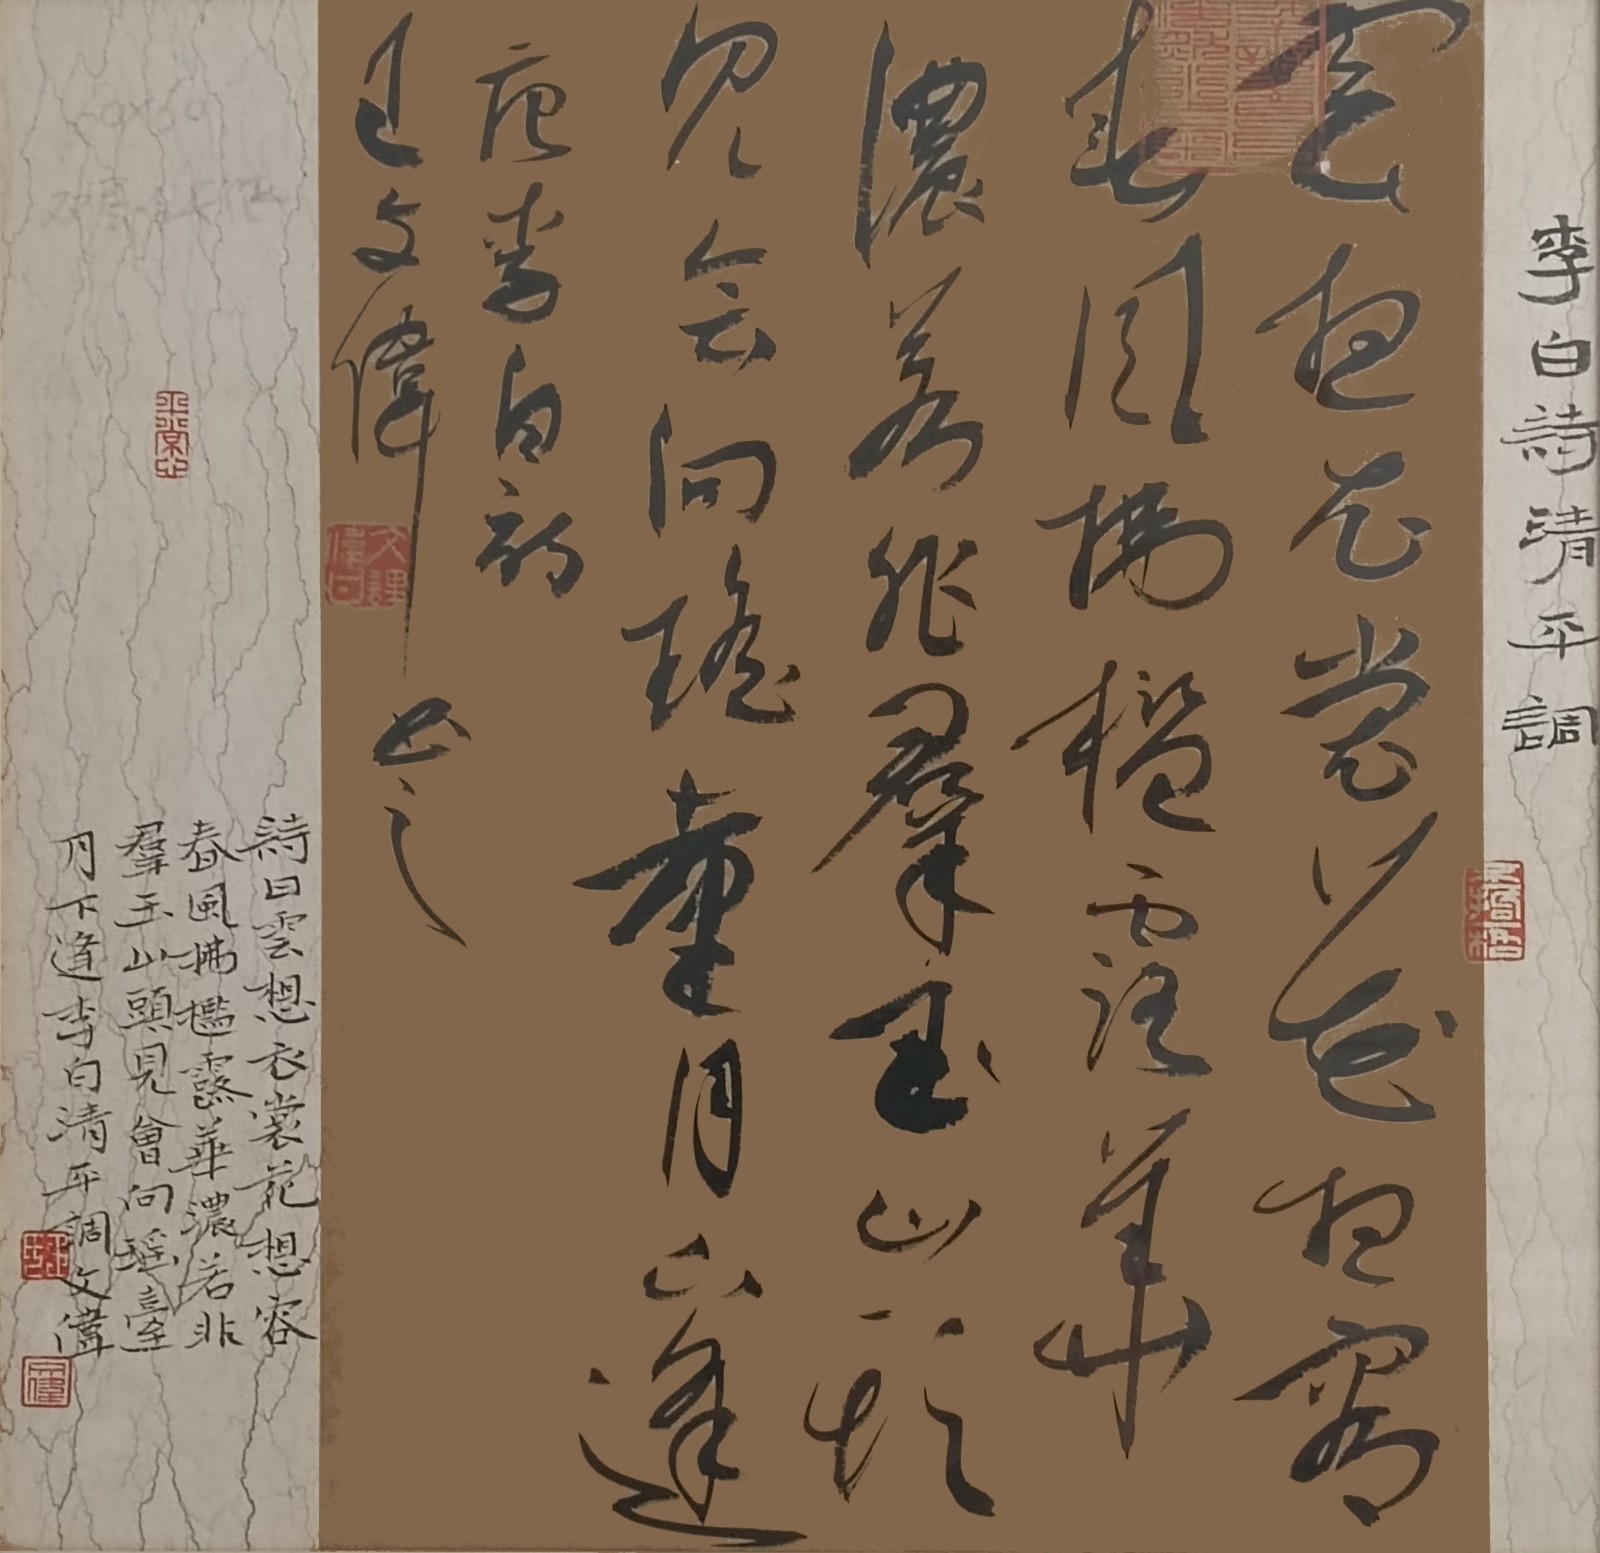 李白詩清平調
雲想衣裳花想容
春風拂檻露華
濃若非羣玉山頭
見會向瑤臺月下逢
唐李白詩
王文偉
詩曰雲想衣裳花想容
春風拂檻露華濃若非
羣玉山頭見會向瑤臺
月下逢李白清平調文偉